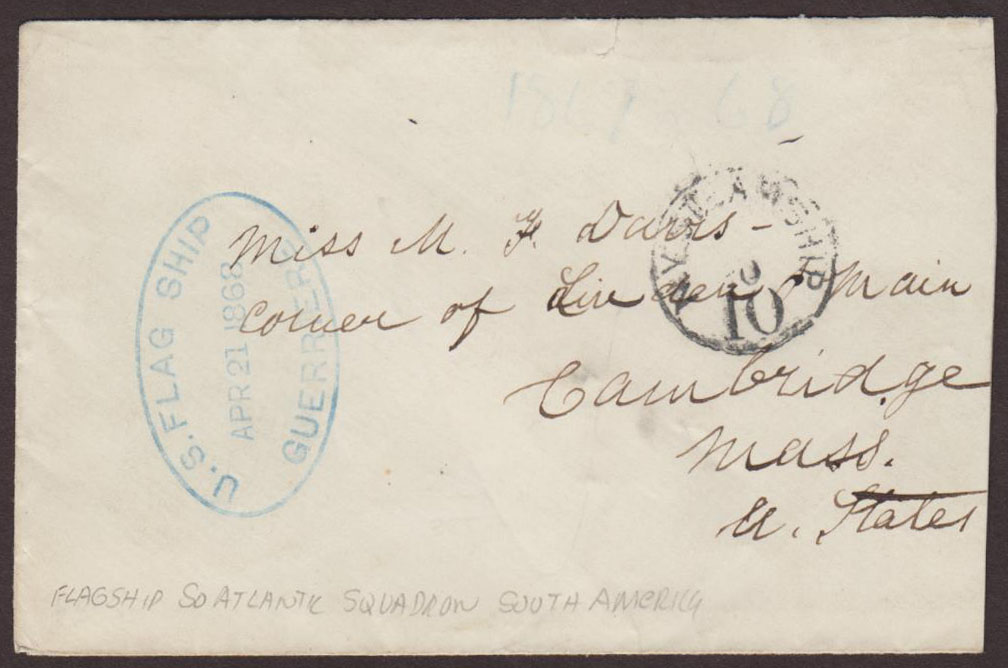 1867 - 68
U.S. FLAG SHIP
APR 21 1868
GUERRIERE
N.Y. STEAMSHIP
10
Miss M. F. Davis -
Corner of Linden & Main
Cambridge
Mass.
U. States
FLAGSHIP SO ATLANTIC SQUADRON SOUTH AMERICA